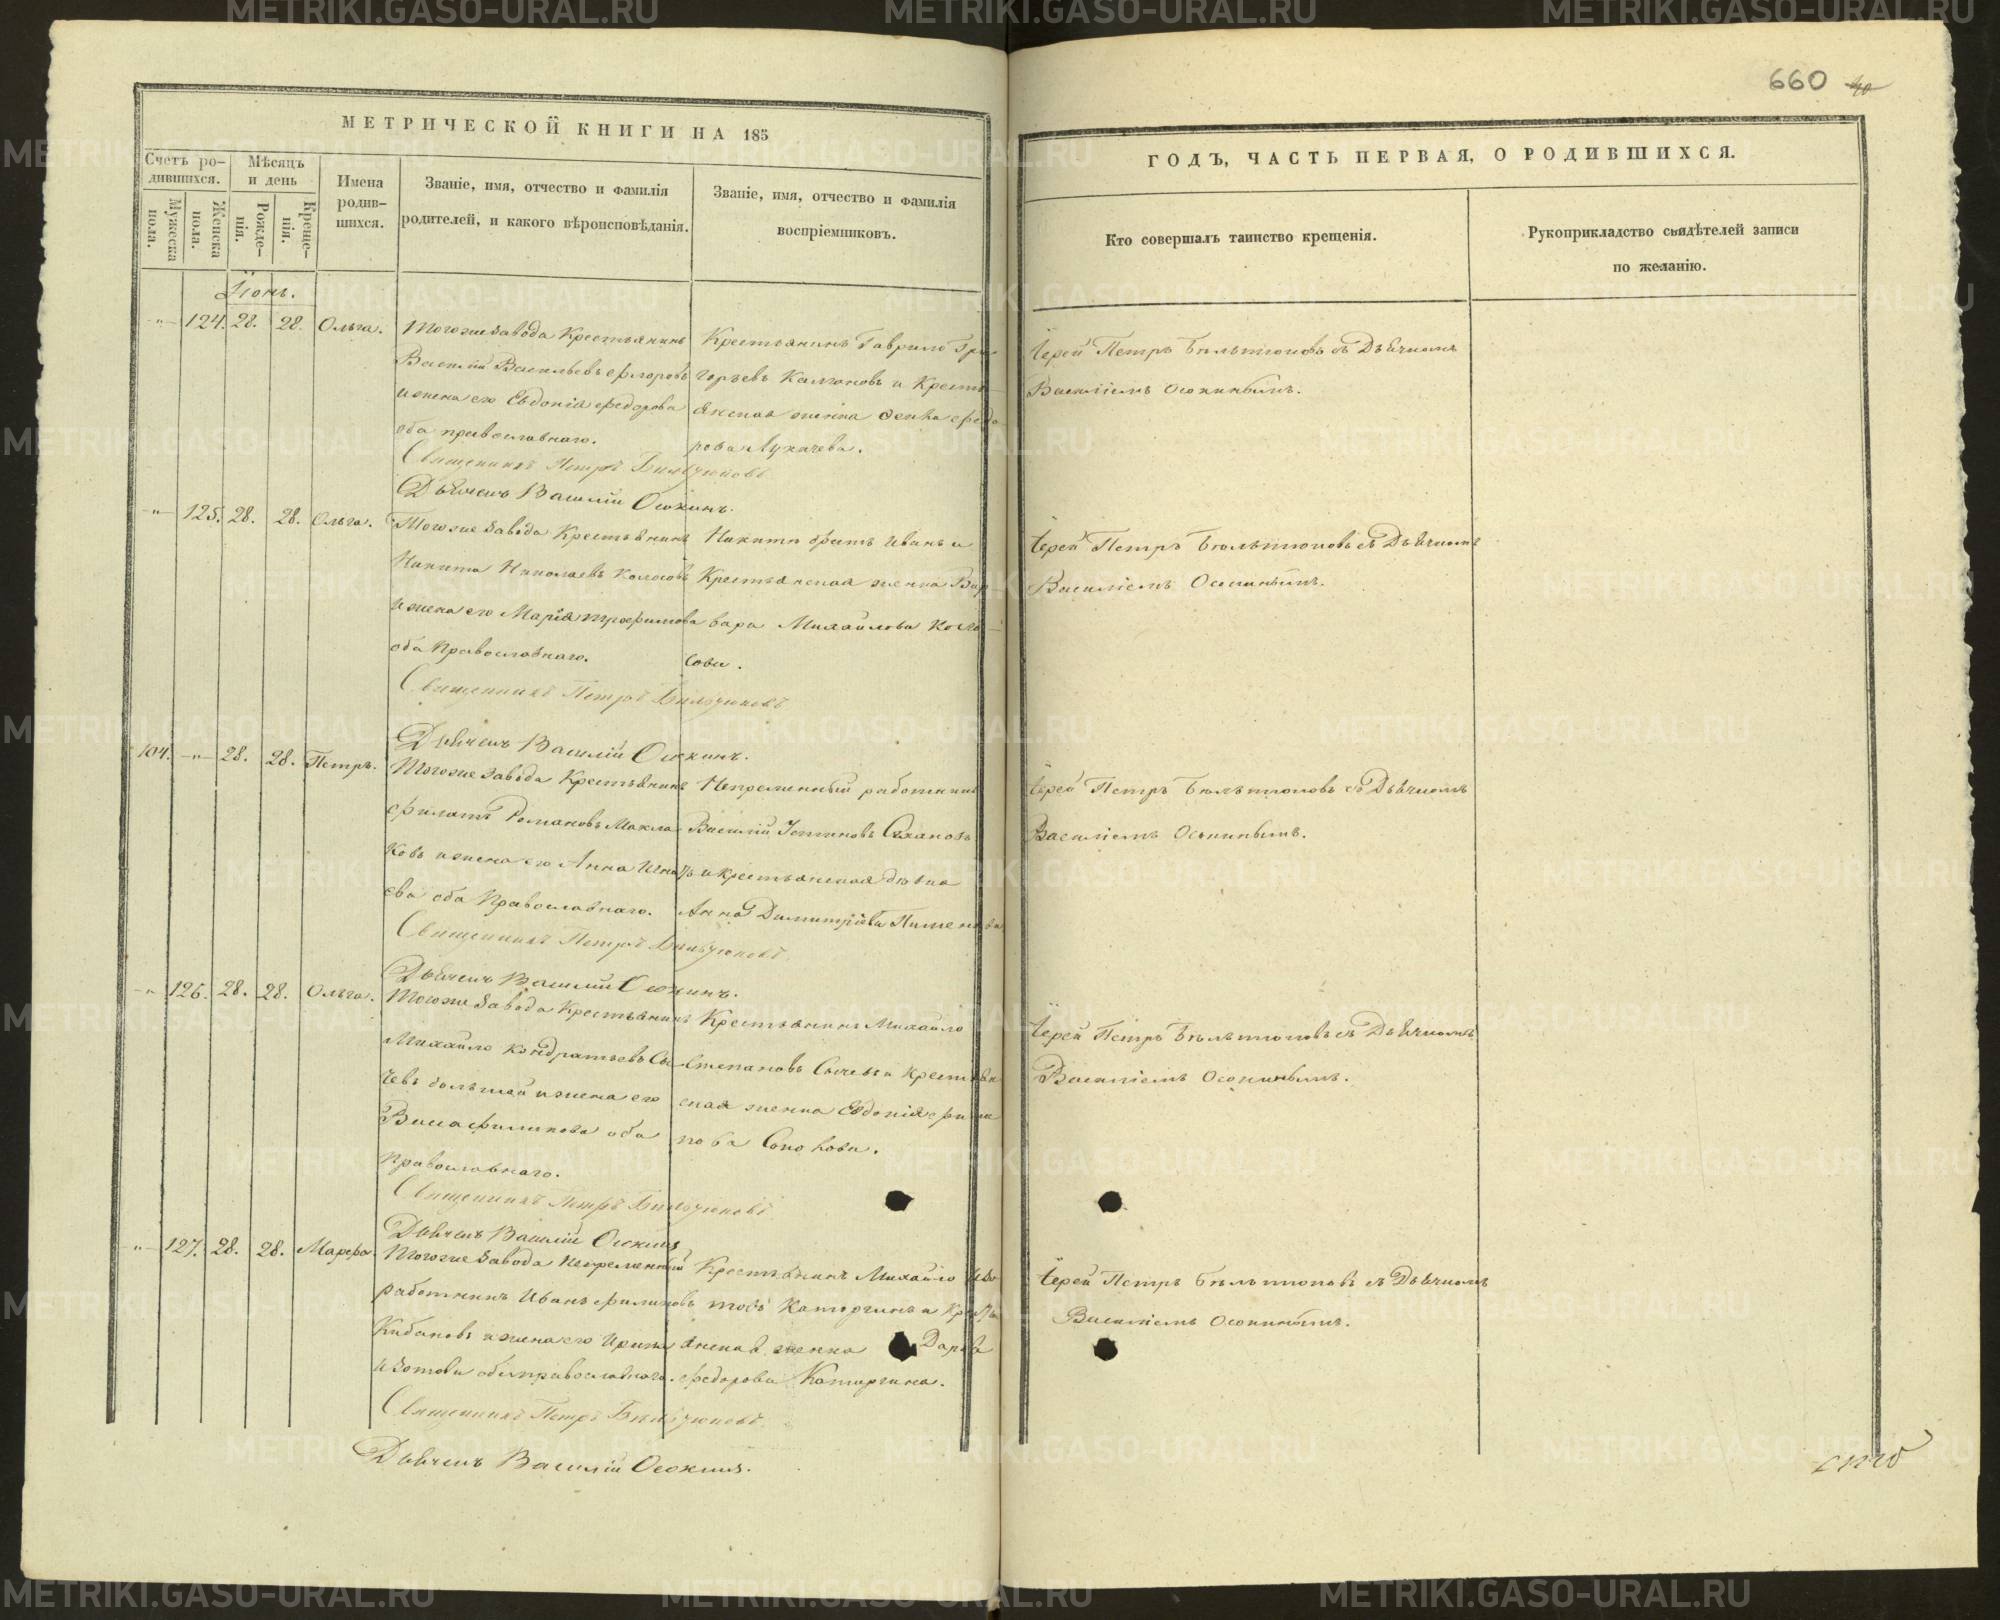 МЕТРИЧЕСКОЙ КНИГИ НА 185
Счетъ ро-
дившихся.
Мѣсяцъ
и день
Мужеска
пола.
Женска
пола.
Рожде-
нія.
Креще-
нія.
Имена
родив-
шихся.
Званіе, имя, отчество и фамилія
родителей, и какого вѣроисповѣданія.
Званіе, имя, отчество и фамилія
воспріемниковъ.
Іюнь.
124. 28. 28. Ольга.
Тогоже завода Крестьянинъ
Василій Васильевъ Флоровъ
и жена его Евдокія Федорова
оба православнаго.
Крестьянинъ Гаврило Гри-
горьевъ Калгановъ и Кресть-
янская женка Федо
рова Лукачева.
Священникъ Петръ
Дьячекъ Василій Осокинъ.
125. 28. 28. Ольга.
Тогоже завода Крестьянинъ
Никита Николаевъ Колосовъ
и жена его Марія Трофимова
оба Православнаго.
Никиты братъ Иванъ и
Крестьянская женка Вар
вара Михайлова Коло-
сова.
Священникъ Петръ
Дьячекъ Василій Осокинъ.
104. 28. 28. Петръ.
Тогоже завода Крестьянинъ
Филатъ Романовъ Макла
ковъ и жена его Анна Игнать
ева оба Православнаго.
Непременный работникъ
Василій
и крестьянская дѣвка
Анна Димитріева Пименова
Священникъ Петръ
Дьячекъ Василій Осокинъ.
126. 28. 28. Ольга.
Тогоже завода Крестьянинъ
Михайло Кондратьевъ Сы
чевъ большой и жена его
оба
Православнаго.
Крестьянинъ Михайло
Степановъ Сычевъ и Крестьян
ская женка Евдокія Фили
пова
Священникъ Петръ
Дьячекъ Василій Осокинъ
127. 28. 28. Марфа.
Тогоже завода Непременный
работникъ Иванъ Филиповъ
Кабановъ и жена его Ирина
Изотова оба православнаго.
Крестьянинъ Михайло Изо
товъ Каторгинъ и Кресть
янская женка Дарья
Федорова Каторгина.
Священникъ Петръ
Дьячекъ Василій Осокинъ.
660
ГОДЪ, ЧАСТЬ ПЕРВАЯ, О РОДИВШИХСЯ.
Кто совершалъ таинство крещенія.
Рукоприкладство свидѣтелей записи
по желанію.
Іерей Петръ Бѣльтюковъ съ Дьячкомъ
Василіемъ Осокинымъ.
Іерей Петръ Бѣльтюковъ съ Дьячкомъ
Василіемъ Осокинымъ.
Іерей Петръ Бѣльтюковъ съ Дьячкомъ
Василіемъ Осокинымъ.
Іерей Петръ Бѣльтюковъ съ Дьячкомъ
Василіемъ Осокинымъ.
Іерей Петръ Бѣльтюковъ съ Дьячкомъ
Василіемъ Осокинымъ.
METRIKI.GASO-URAL.RU